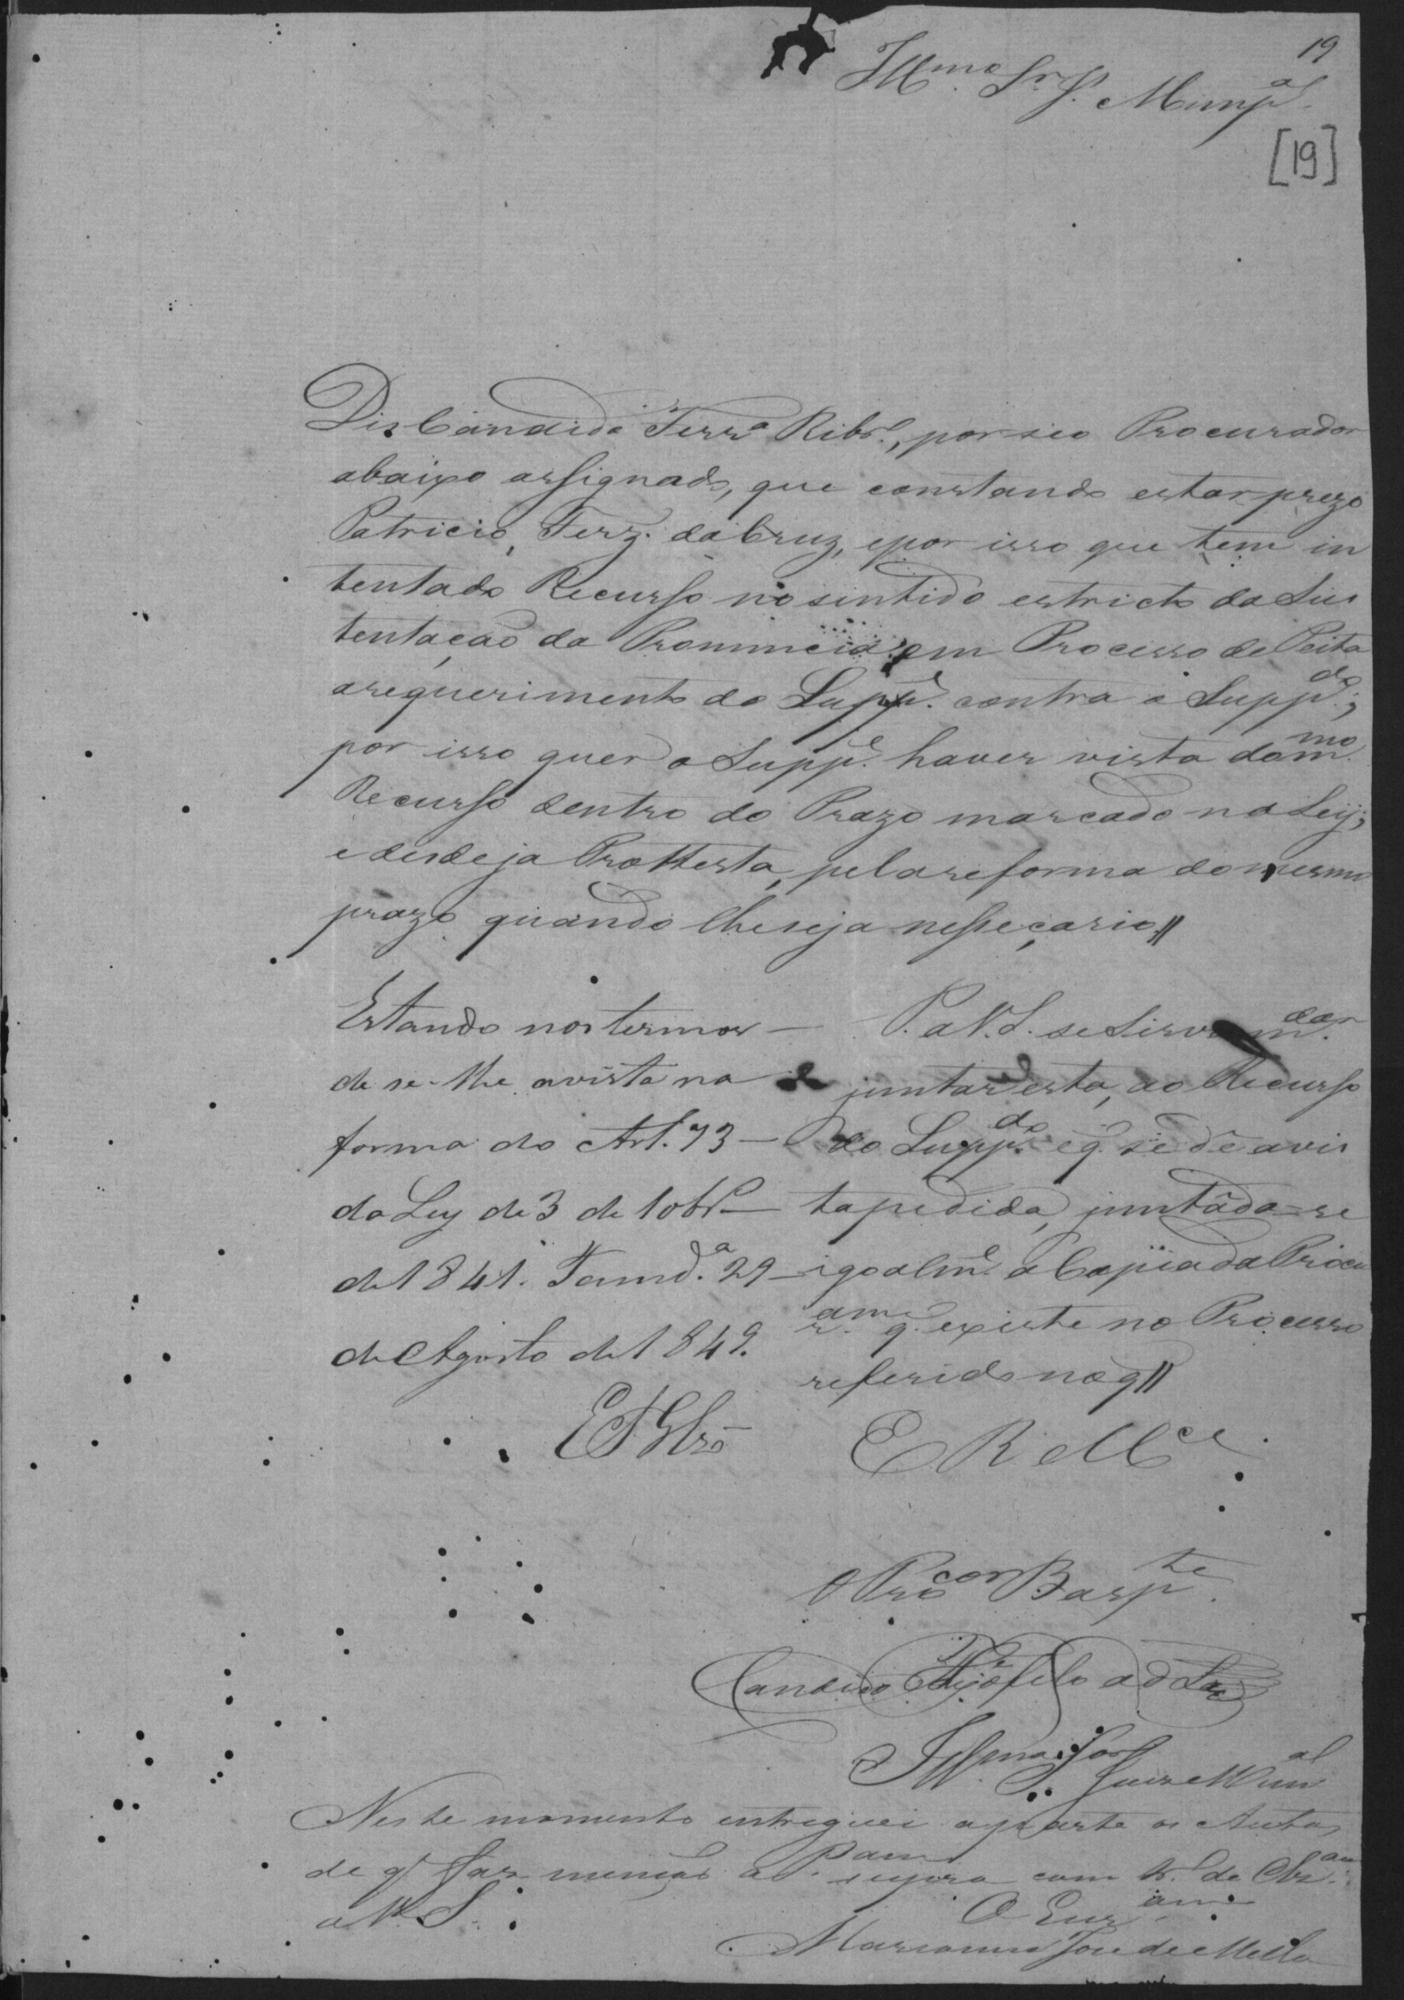 19
Illmo Sr. J. Munpal
[19]
Dis Candido Ferra Ribro, por seo Procurador
abaixo assignado, que constando estar prezo
Patricio Ferz. da Cruz, epor isso que tem in
tentado Recurso no sintido estricto da Sus
tentação da Pronuncia em Processo de Peita
a requerimento do Suppe. contra o Suppdo;
por isso quer o Suppe. haver vista do mmo
Recurso dentro do Prazo marcado na Ley;
e desde ja Prottesta, pela reforma do mesmo
prazo quando lhe seja nesseçario //
Estando nos termos —
de se-lhe a vista na
forma do Art. 73 —
da Ley de 3 de 10br —
de 1841. Tamda. 29 —
de Agosto de 1849.
P. a V. S. se Sirva mdar
juntar esta, ao Recurso
do Suppdo eq. se dê avis
ta pedida, juntãdo-se
igoalme a Copia da Procu
ram q. existe no Processo
referido no q //
E R Mce
O Procor Baste
Candido
Illmo Sor Juiz Munal
Neste momento entreguei a parte os Autos
de q. faz menção a supra com
a V. S.
O
Marianno Jose de Mello